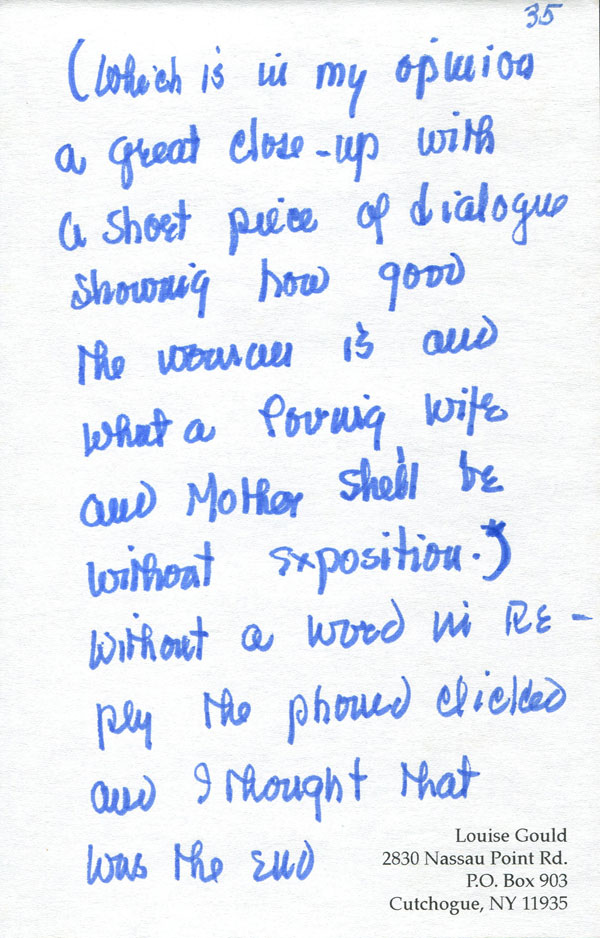 35
(Which is in my opinion
a great close-up with
a short piece of dialogue
showing how good
the woman is and
what a loving wife
and Mother she'll be
without exposition.)
Without a word in RE-
ply the phoned clicked
and I thought that
was the END
Louise Gould
2830 Nassau Point Rd.
P.O. Box 903
Cutchogue, NY 11935